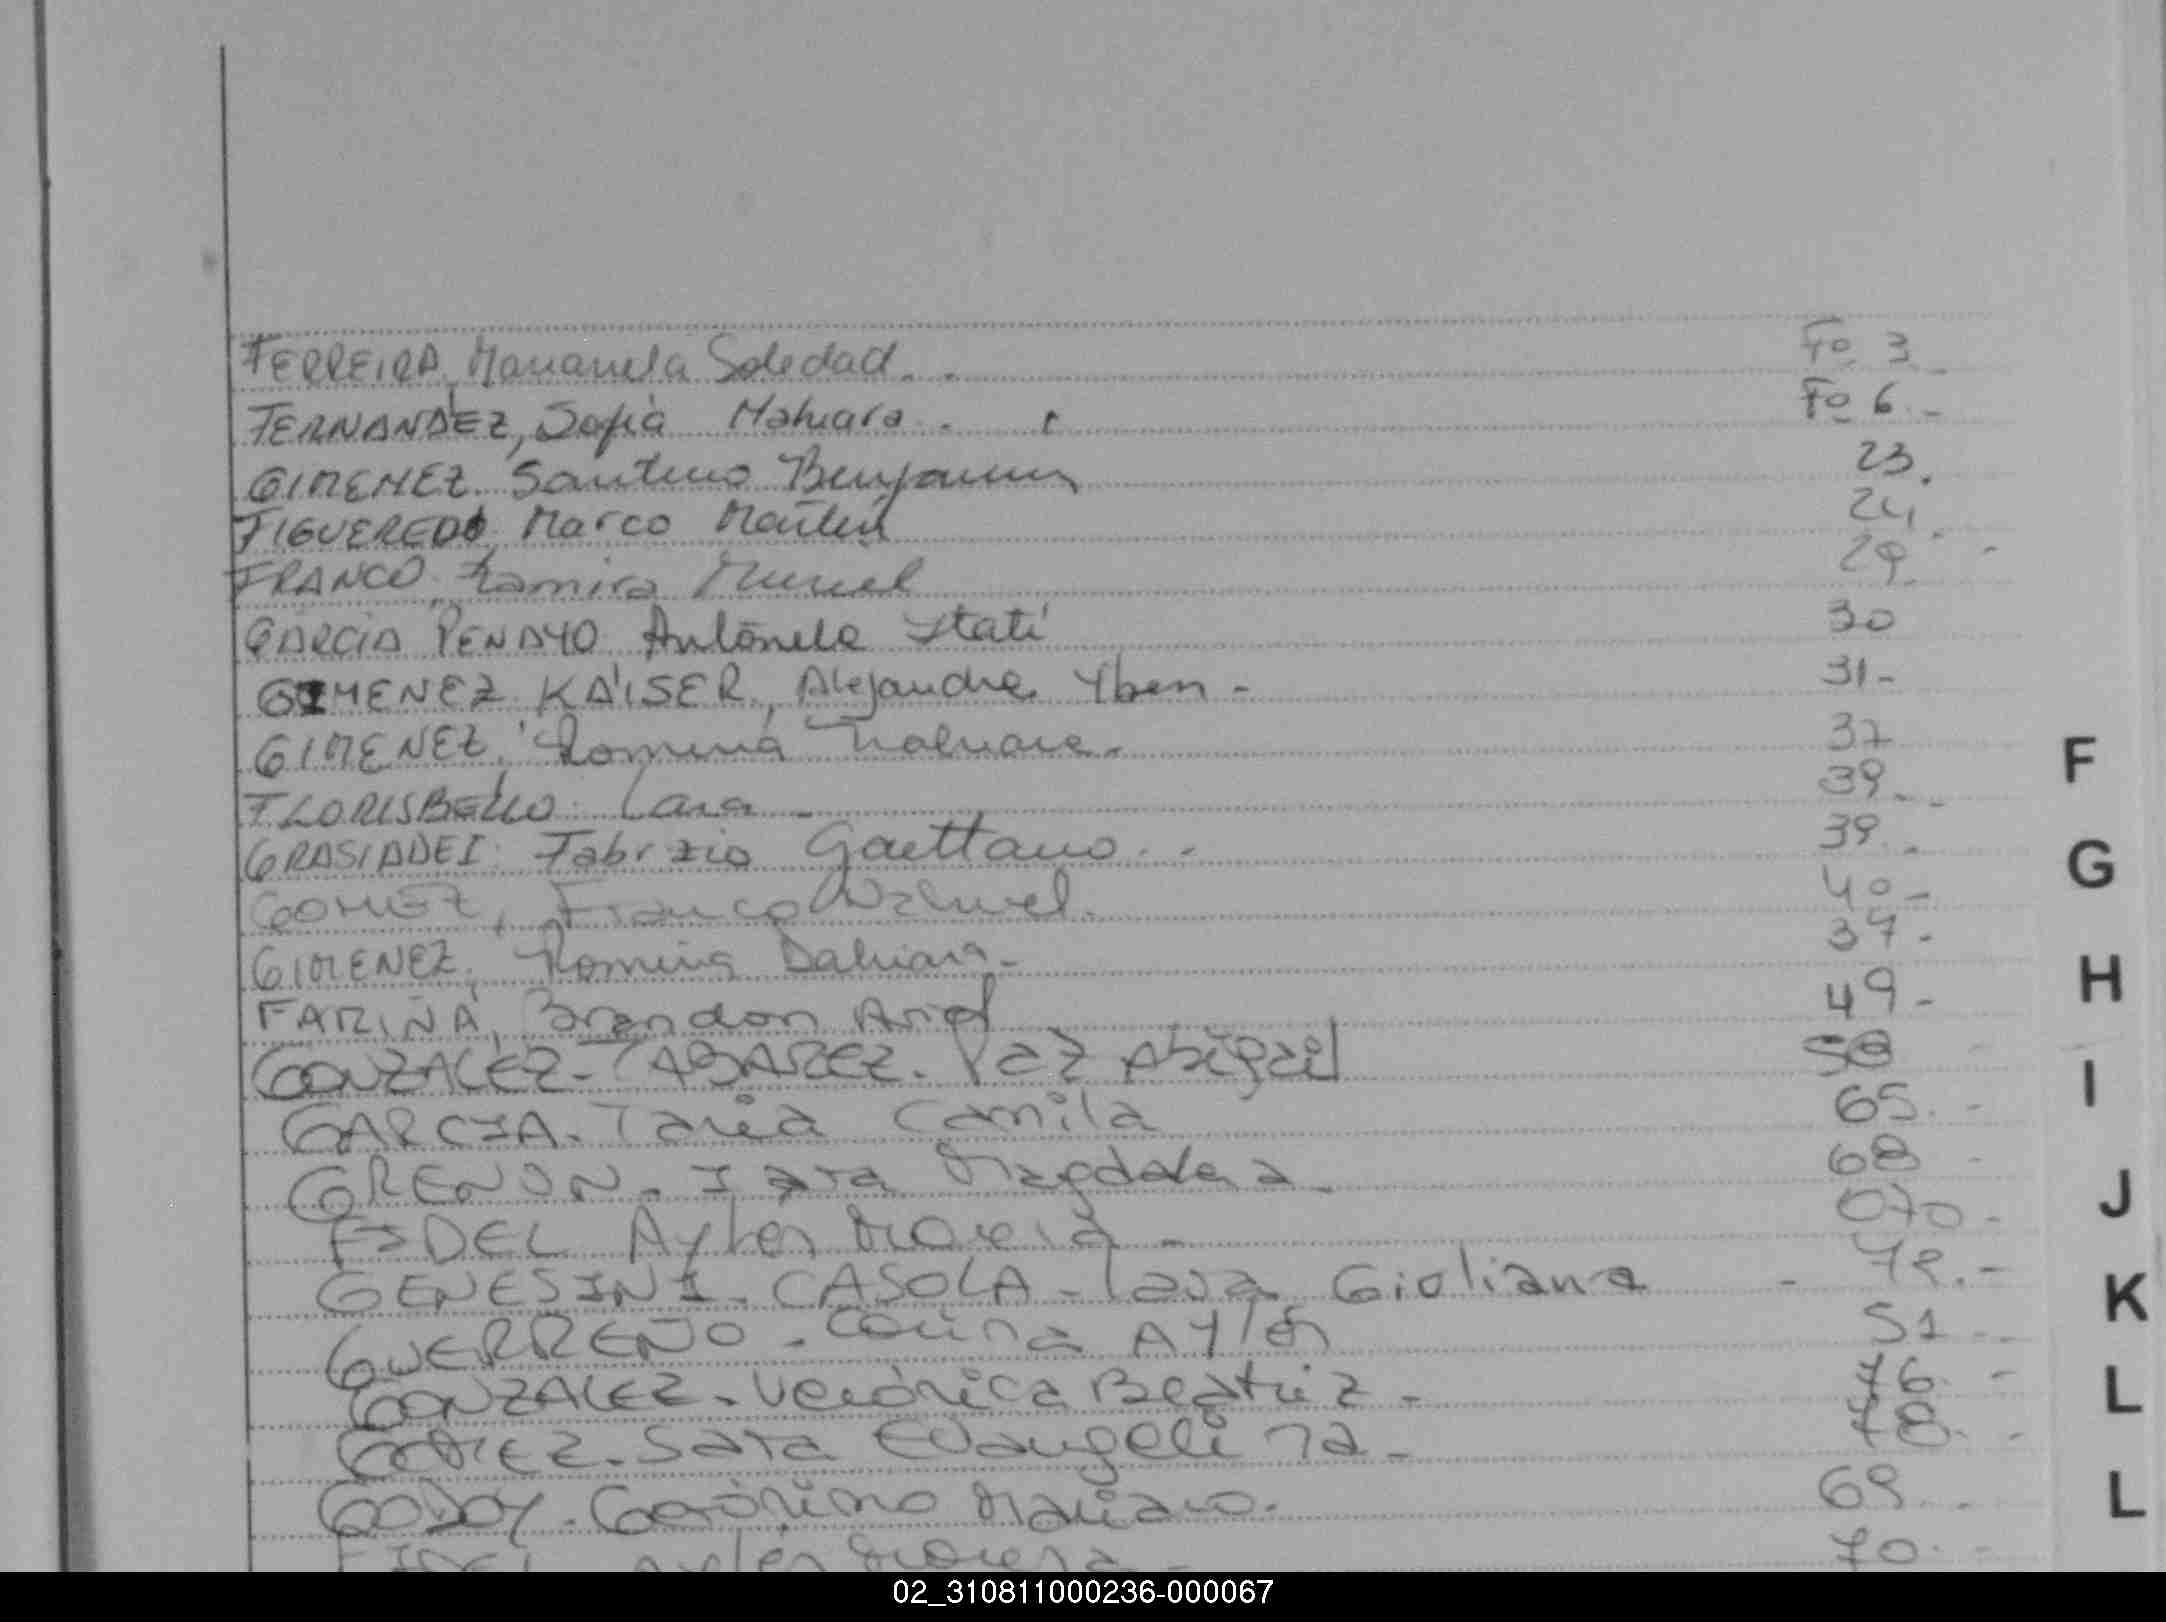 FERREIRA, Marianela Soledad. . Fo 3 -
FERNANDEZ, Sofia Mahiara. Fo 6. -
GIMENEZ. Santino Benjamin 23.
FIGUEREDO, Marco Martin 24.
FRANCO. Ramira Muriel 29. -
GARCIA PENAYO Antonela Itati 30
GIMENEZ KAISER, Alejandra 31-
GIMENEZ, Romina 37
FLORISBELLO. Lara - 39. -
GRASIADEI. Fabrizio Gaettano. . 39. .
GOMEZ, Franco Nahuel. 40-
GIMENEZ, Romina Dahiana- 37-
FARIÑA, Brendon Ariel 49-
GONZALEZ-TABAREZ. Paz Abigail 58
GARCIA. Tania Camila 65. -
GRENON. Iara Magdalena. 68 -
FIDEL Aylen Morena - 070-
GENESINI. CASOLA - Lara Giuliana - 72.-
GUERREÑO. Corina Aylén 51 -
GONZALEZ. Verónica Beatriz - 76 -
GOMEZ. Sara Evangelina - 78. -
GODOY. Gerónimo Mariano. 69
FIDEL Aylen Morena - 70. -
F
G
H
I
J
K
L
L
02_310811000236-000067